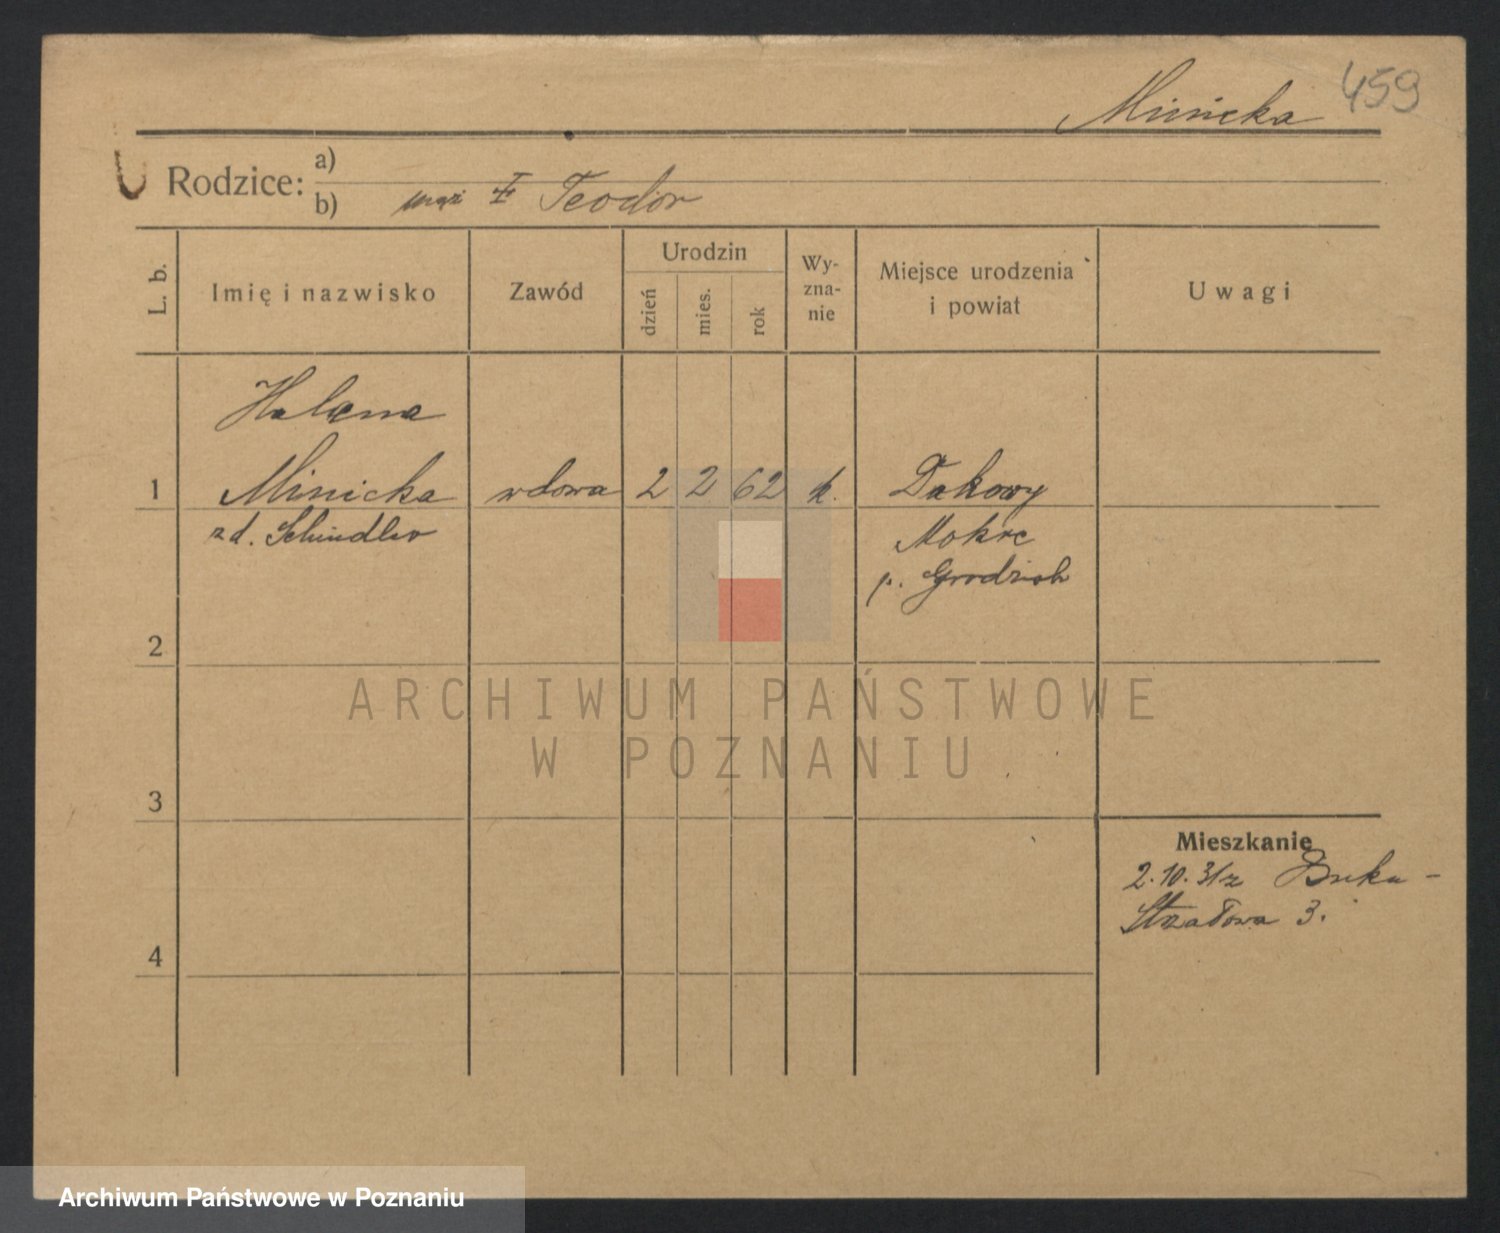 459
Minicka
Rodzice: a)
b) mąż ‡ Teodor
L. b.
Imię i nazwisko
Zawód
Urodzin
dzień
mies.
rok
Wy-
zna-
nie
Miejsce urodzenia
i powiat
Uwagi
Helena
1 Minicka wdowa 2 2 62 k. Dakowy
zd. Schindler Mokre
p. Grodzisk
2
ARCHIWUM PAŃSTWOWE
W POZNANIU
3
Mieszkanie
2.10.31 z Buku -
Strzałowa 3.
4
Archiwum Państwowe w Poznaniu